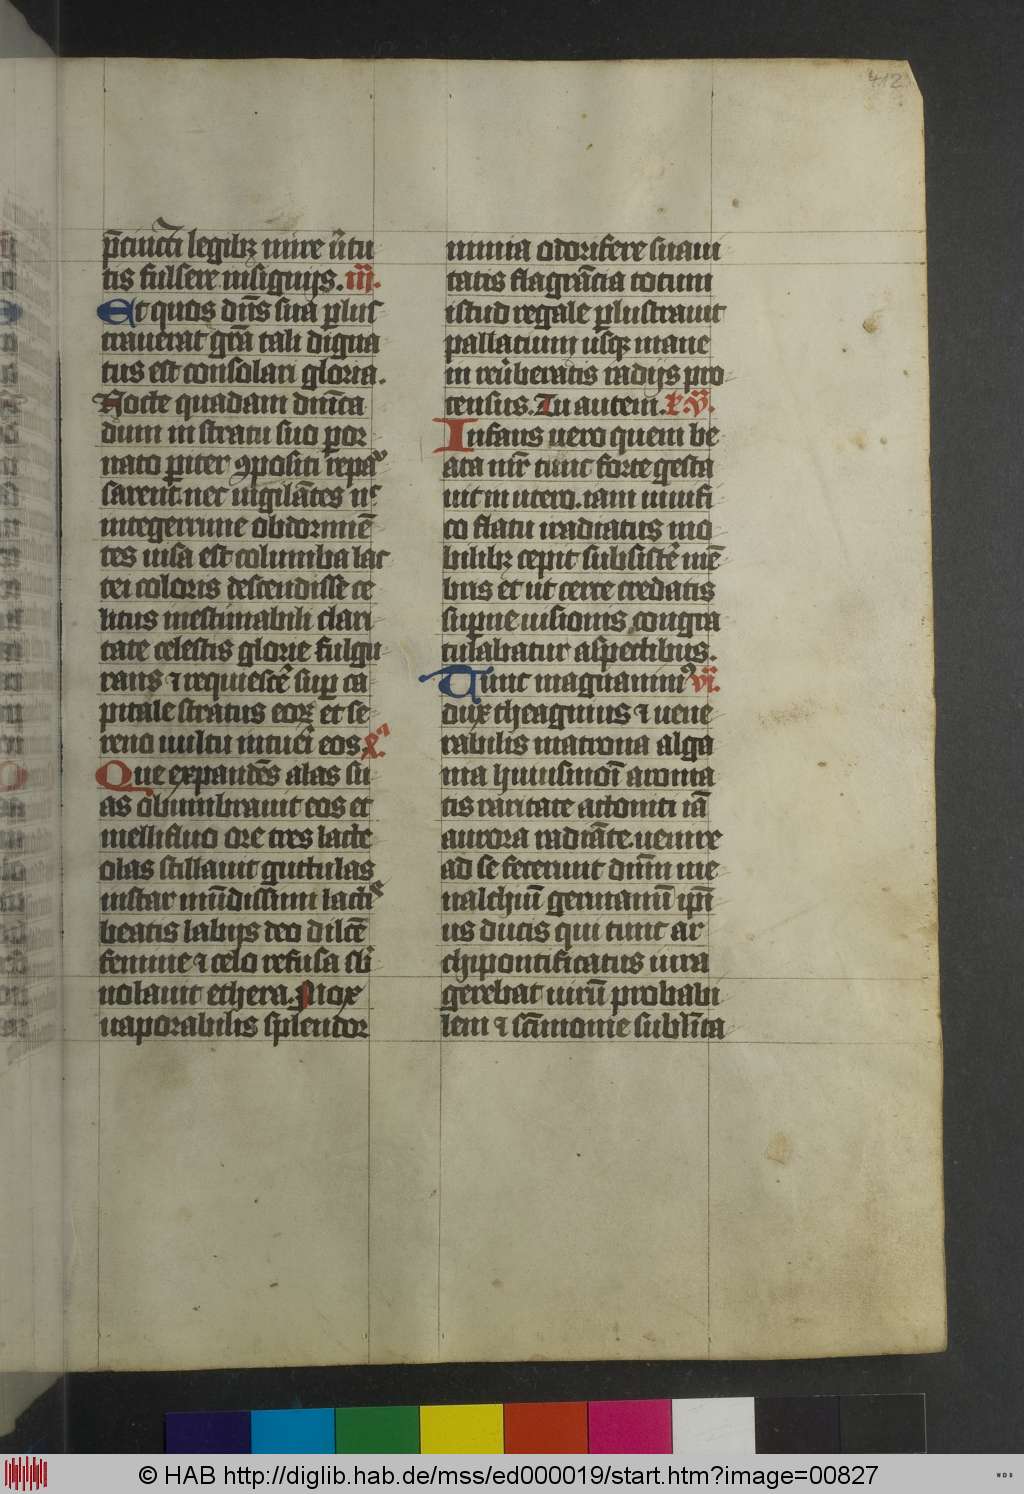 412
p̄cincti legibꝫ mire v̓tu
tis fulsere insignijs. iij.
Et quos dn̄s sua plus
trauerat gr̄a tali digna
tus est consolari gloria.
Nocte quadam dn̄ica
dum in stratu suo por
nato pariter ꝯpositi repa
sarent. nec vigilātes nͨ
integerrime obdormiē
tes uisa est columba lac
tei coloris descendisse ce
litus inestimabili clari
tate celestis glorie fulgu
rans ⁊ requiescē sup ca
pitale stratus eoꝝ et se
reno uultu intueri eos. ꝶ
Que expandēs alas su
as obumbrauit eos et
mellifluo ore tres lacte
olas stillauit guttulas
instar mūdissimi lactis
beatis labijs deo dilcē
femine ⁊ celo refusa sb̓
uolauit ethera. Mox
uaporabilis splendor
nimia odorifere suaui
tatis flagrācia totum
istud regale plustrauit
pallatium usqꝫ mane
in reu̓beratis radijs pro
tensus. Tu autem. ꝶ. v̄.
Infans uero quem be
ata mr̄ tunc forte gesta
uit in utero. iam uiuifi
co flatu iradiatus mo
bilibꝫ cepit subsistē mē
bris et ut certe credatis
supne uisionis congra
tulabatur aspectibus.
Tunc magnanimꝰ vi.
dux theagnius ⁊ uene
rabilis matrona alga
ma huiusmōi aroma
tis raritate attoniti iā
aurora radiāte. uenire
ad se fecerunt dnm̄ me
nalchiū germanū ip̄i
us ducis qui tunc ar
chipontificatus iura
gerebat uirū probabi
lem ⁊ sc̄imonie subli̅ta
© HAB http://diglib.hab.de/mss/ed000019/start.htm?image=00827